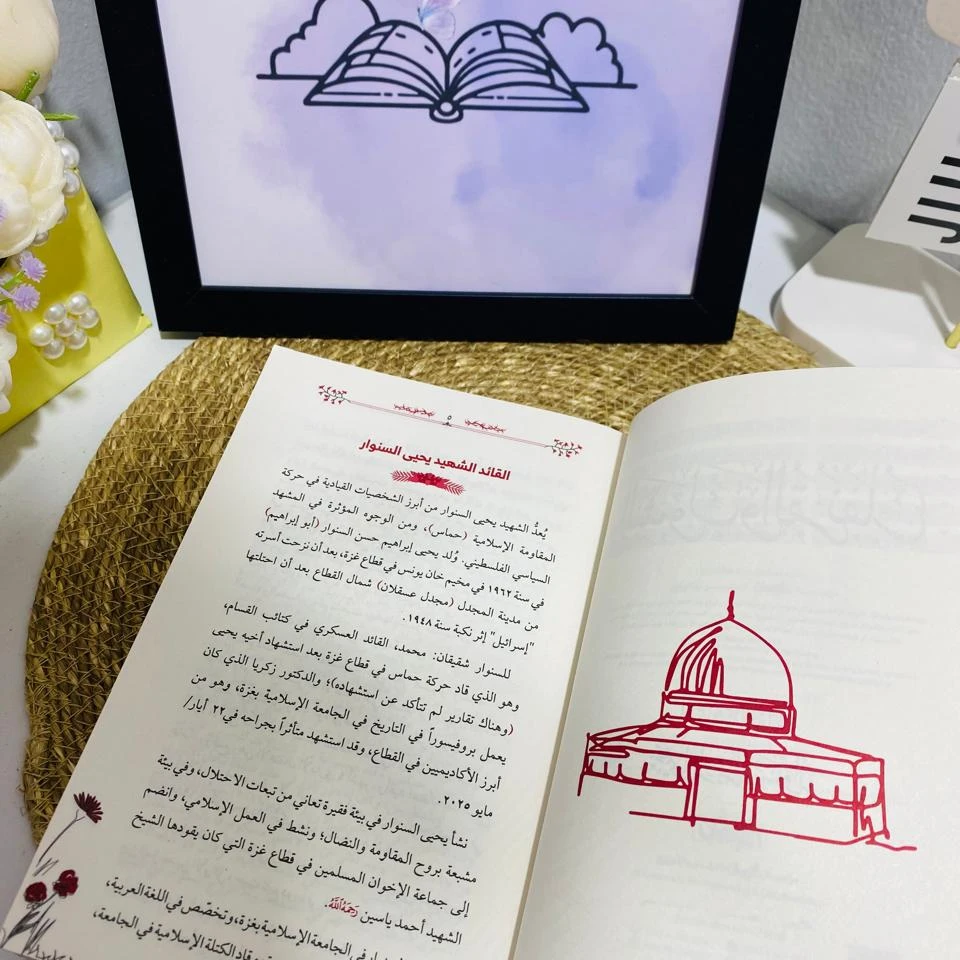 القائد الشهيد يحيى السنوار
يُعدُّ الشهيد يحيى السنوار من أبرز الشخصيات القيادية في حركة
المقاومة الإسلامية (حماس)، ومن الوجوه المؤثرة في المشهد
السياسي الفلسطيني. وُلد يحيى إبراهيم حسن السنوار (أبو إبراهيم)
في سنة ١٩٦٢ في مخيم خان يونس في قطاع غزة، بعد أن نزحت أسرته
من مدينة المجدل (مجدل عسقلان) شمال القطاع بعد أن احتلتها
"إسرائيل" إثر نكبة سنة ١٩٤٨.
للسنوار شقيقان: محمد، القائد العسكري في كتائب القسام،
وهو الذي قاد حركة حماس في قطاع غزة بعد استشهاد أخيه يحيى
(وهناك تقارير لم تتأكد عن استشهاده)؛ والدكتور زكريا الذي كان
يعمل بروفيسوراً في التاريخ في الجامعة الإسلامية بغزة، وهو من
أبرز الأكاديميين في القطاع، وقد استشهد متأثراً بجراحه في ٢٢ أيار/
مايو ٢٠٢٥.
نشأ يحيى السنوار في بيئة فقيرة تعاني من تبعات الاحتلال، وفي بيئة
مشبعة بروح المقاومة والنضال؛ ونشط في العمل الإسلامي، وانضم
إلى جماعة الإخوان المسلمين في قطاع غزة التي كان يقودها الشيخ
الشهيد أحمد ياسين رَحِمَهُ اللَّهُ.
في الجامعة الإسلامية بغزة، وتخصّص في اللغة العربية،
قاد الكتلة الإسلامية في الجامعة،